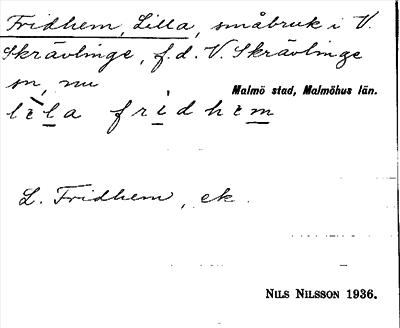 Fridhem, Lilla, småbruk i V.
Skrävlinge, f.d. V. Skrävlinge
sn, nu Malmö stad, Malmöhus län.
lìla frìdhèm
L. Fridhem, ek.
NILS NILSSON 1936.